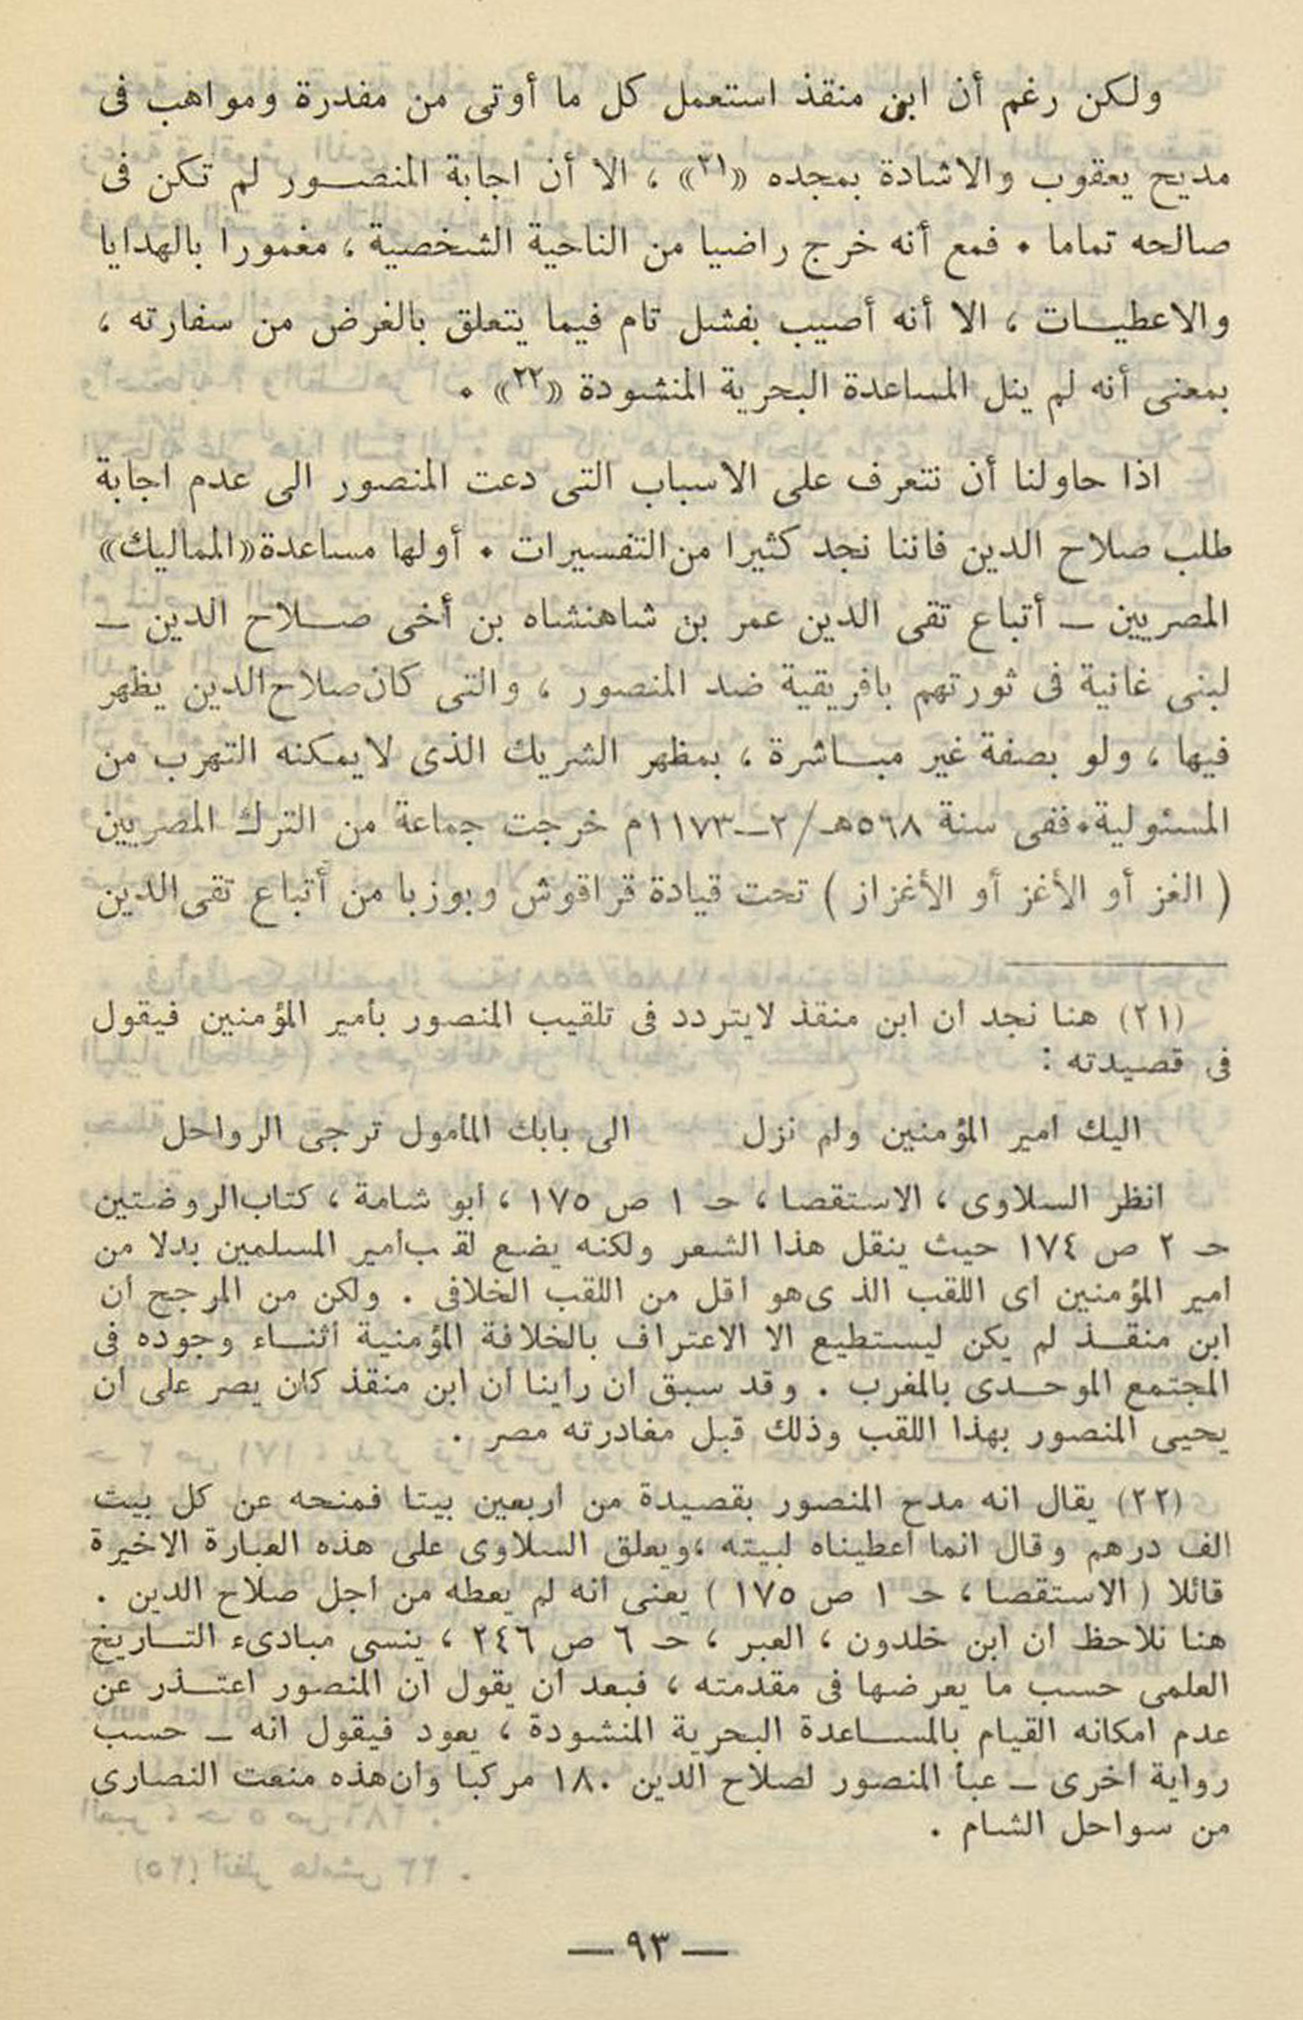 ولكن رغم أن ابن منقذ استعمل كل ما أوتى من مقدرة ومواهب فى
مديح يعقوب والاشادة بمجده «٢١» ، الا أن اجابة المنصور لم تكن فى
صالحه تماما . فمع أنه خرج راضيا من الناحية الشخصية ، مغمورا بالهدايا
والاعطيات ، الا أنه أصيب بفشل تام فيما يتعلق بالغرض من سفارته ،
بمعنى أنه لم ينل المساعدة البحرية المنشودة «٢٢» .
اذا حاولنا أن نتعرف على الاسباب التى دعت المنصور الى عدم اجابة
طلب صلاح الدين فاننا نجد كثيرا من التفسيرات . أولها مساعدة «المماليك»
المصريين ــ أتباع تقى الدين عمر بن شاهنشاه بن أخى صلاح الدين ــ
لبنى غانية فى ثورتهم بافريقية ضد المنصور ، والتى كان صلاح الدين يظهر
فيها ، ولو بصفة غير مباشرة ، بمظهر الشريك الذى لا يمكنه التهرب من
المسئولية . ففى سنة ٥٦٨هـ/٢ــ١١٧٣م خرجت جماعة من الترك المصريين
( الغز أو الأغز أو الأغزاز ) تحت قيادة قراقوش وبوزبا من أتباع تقى الدين
(٢١) هنا نجد ان ابن منقذ لايتردد فى تلقيب المنصور بأمير المؤمنين فيقول
فى قصيدته :
اليك امير المؤمنين ولم نزل الى بابك المأمول تزجى الرواحل
انظر السلاوى ، الاستقصا ، حـ ١ ص ١٧٥ ، ابو شامة ، كتاب الروضتين
حـ ٢ ص ١٧٤ حيث ينقل هذا الشعر ولكنه يضع لقب بأمير المسلمين بدلا من
امير المؤمنين اى اللقب الذ ى هو اقل من اللقب الخلافى . ولكن من المرجح ان
ابن منقذ لم يكن ليستطيع الا الاعتراف بالخلافة المؤمنية أثناء وجوده فى
المجتمع الموحدى بالمغرب . وقد سبق ان راينا ان ابن منقذ كان يصر على ان
يحيى المنصور بهذا اللقب وذلك قبل مغادرته مصر .
(٢٢) يقال انه مدح المنصور بقصيدة من اربعين بيتا فمنحه عن كل بيت
الف درهم وقال انما أعطيناه لبيته ،ويعلق السلاوى على هذه العبارة الاخيرة
قائلا ( الاستقصا ، حـ ١ ص ١٧٥ ) يعنى انه لم يعطه من أجل صلاح الدين .
هنا نلاحظ ان ابن خلدون ، العبر ، حـ ٦ ص ٢٤٦ ، ينسى مبادىء التاريخ
العلمى حسب ما يعرضها فى مقدمته ، فبعد ان يقول ان المنصور اعتذر عن
عدم امكانه القيام بالمساعدة البحرية المنشودة ، يعود فيقول انه ــ حسب
رواية اخرى ــ عبأ المنصور لصلاح الدين ١٨٠ مركبا وان هذه منعت النصارى
من سواحل الشام .
ــ ٩٣ ــ